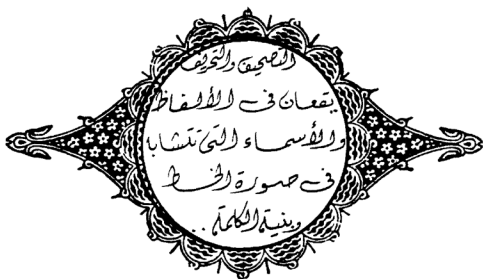 التصحيف والتحريف
يقعان فى الألفاظ
والأسماء التى تتشابه
فى صورة الخط
وبنية الكلمة . .